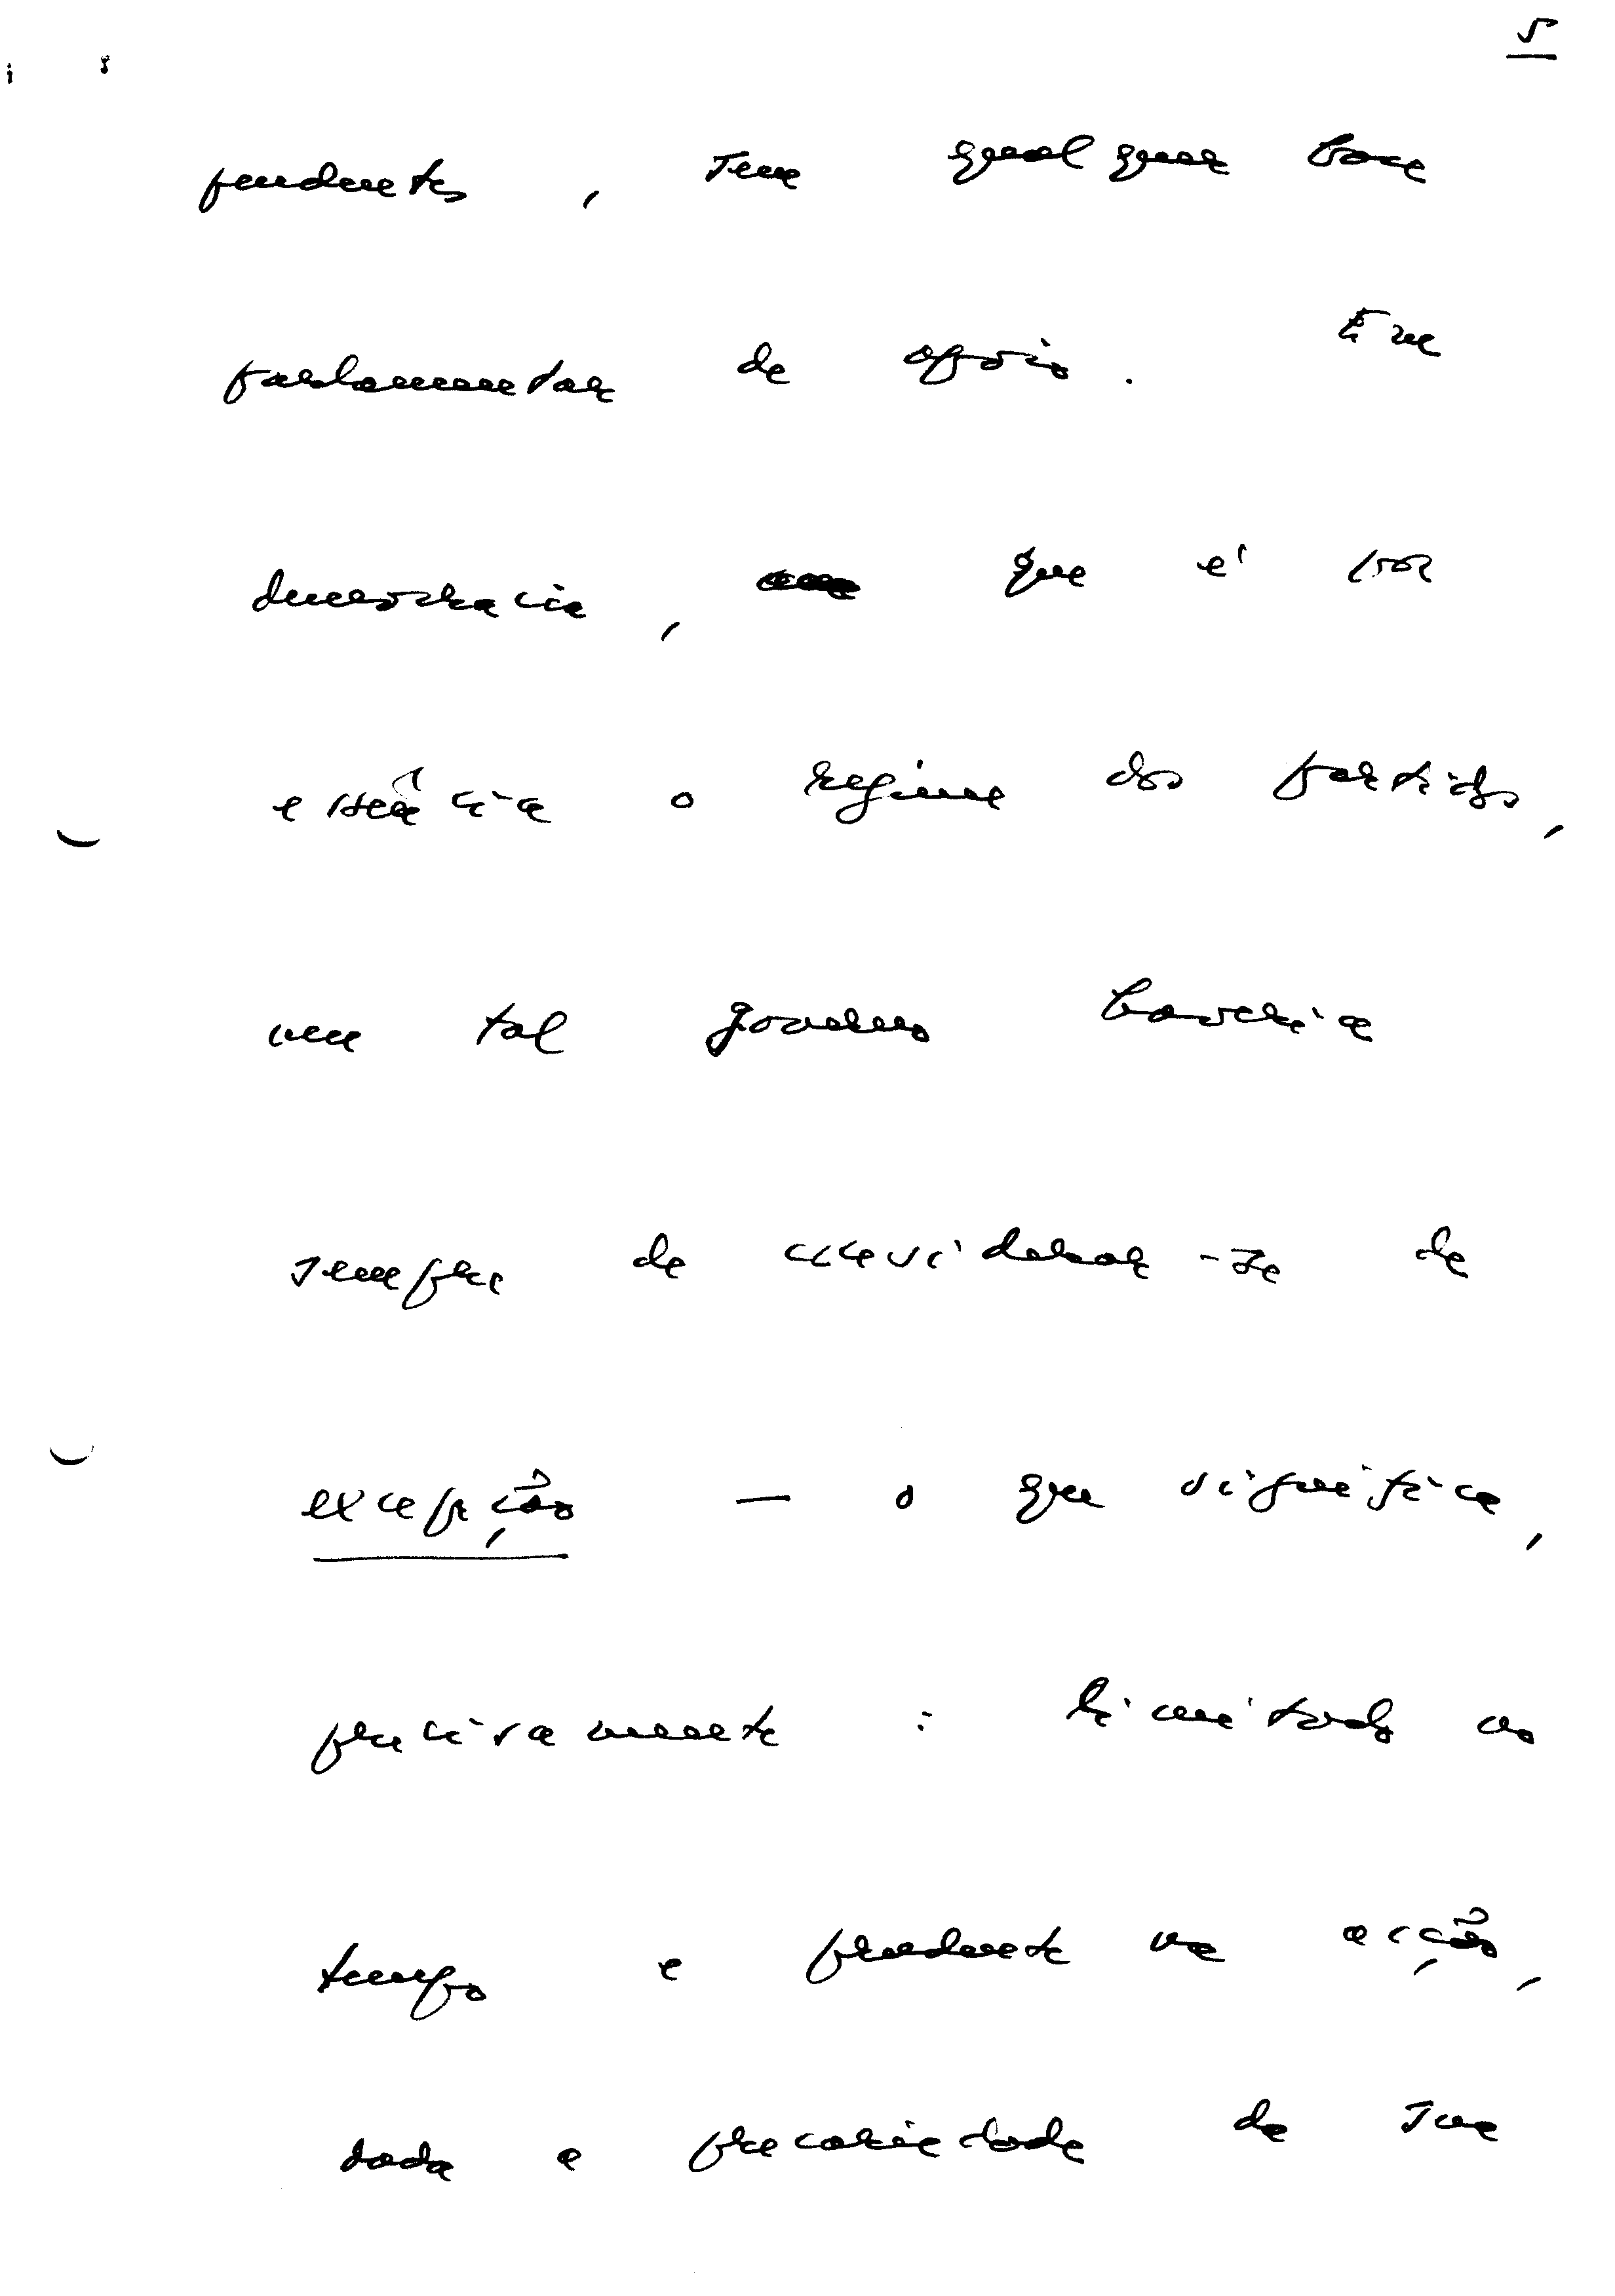 5
pendentes, sem qualquer base
parlamentar de apoio. Em
democracia, que é por
essência o regime dos partidos,
um tal governo haveria
sempre de considerar-se de
excepção — o que significa,
precisamente: limitado no
tempo e prudente na acção,
dada a precariedade de sua